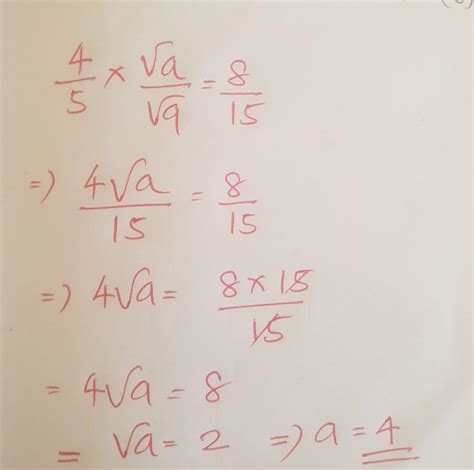 4/5 × √a/√9 = 8/15
=) 4√a/15 = 8/15
=) 4√a = 8×15/15
= 4√a = 8
= √a = 2 =) a = 4